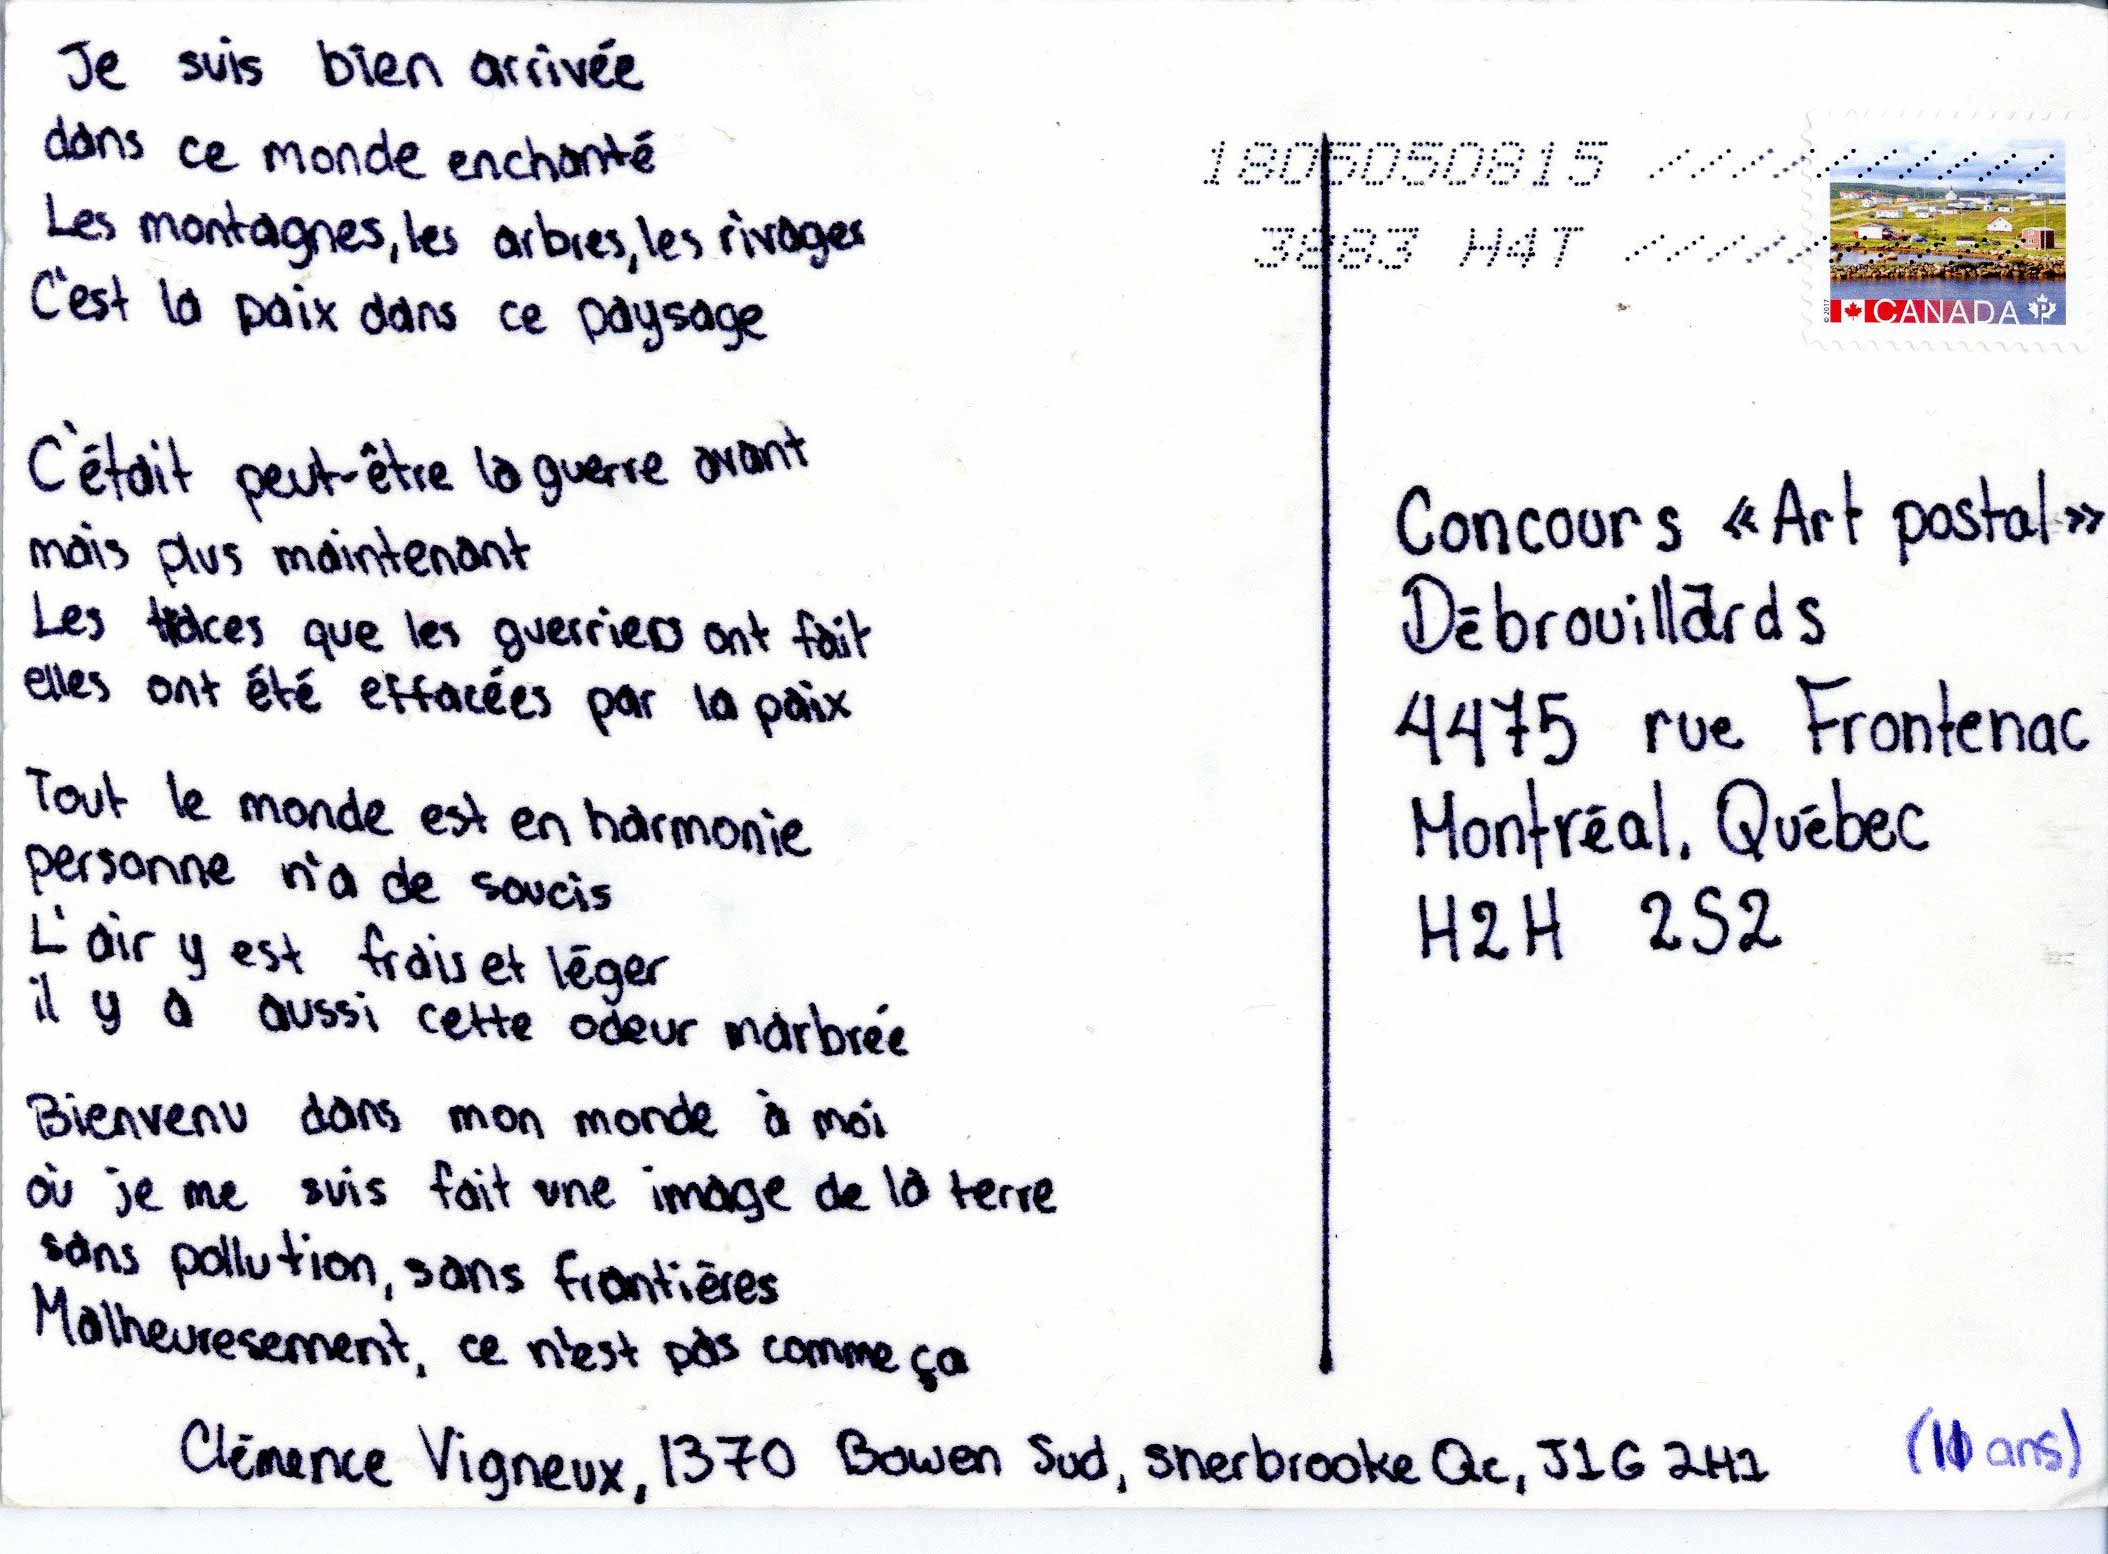 Je suis bien arrivée
dans ce monde enchanté
Les montagnes, les arbres, les rivages
C'est la paix dans ce paysage
C'était peut-être la guerre avant
mais plus maintenant
Les traces que les guerriers ont fait
elles ont été effacées par la paix
Tout le monde est en harmonie
personne n'a de soucis
L'air y est frais et léger
il y a aussi cette odeur marbrée
Bienvenu dans mon monde à moi
où je me suis fait une image de la terre
sans pollution, sans frontières
Malheuresement, ce n'est pas comme ça
Clémence Vigneux, 1370 Bowen Sud, sherbrooke Qc, J1G 2H1
(11 ans)
1805050815
3883 H4T
© 2017 CANADA P
Concours «Art postal»
Débrouillards
4475 rue Frontenac
Montréal, Québec
H2H 2S2